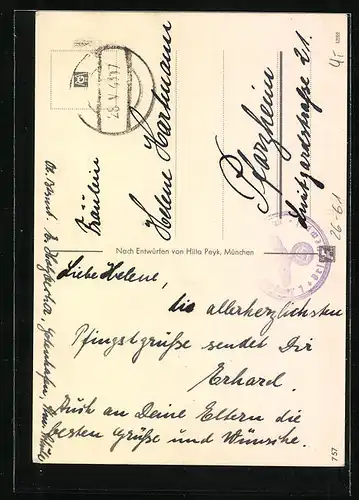 Fräulein
Helene Hartmann
Pforzheim
Luitgardstraße 21.
28.V.43
Nach Entwürfen von Hilla Peyk, München
Liebe Helene,
die allerherzlichsten
Pfingstgrüße sendet Dir
Erhard.
Auch an Deine Eltern die
besten Grüße und Wünsche.
Gotenhafen,
26-61
757